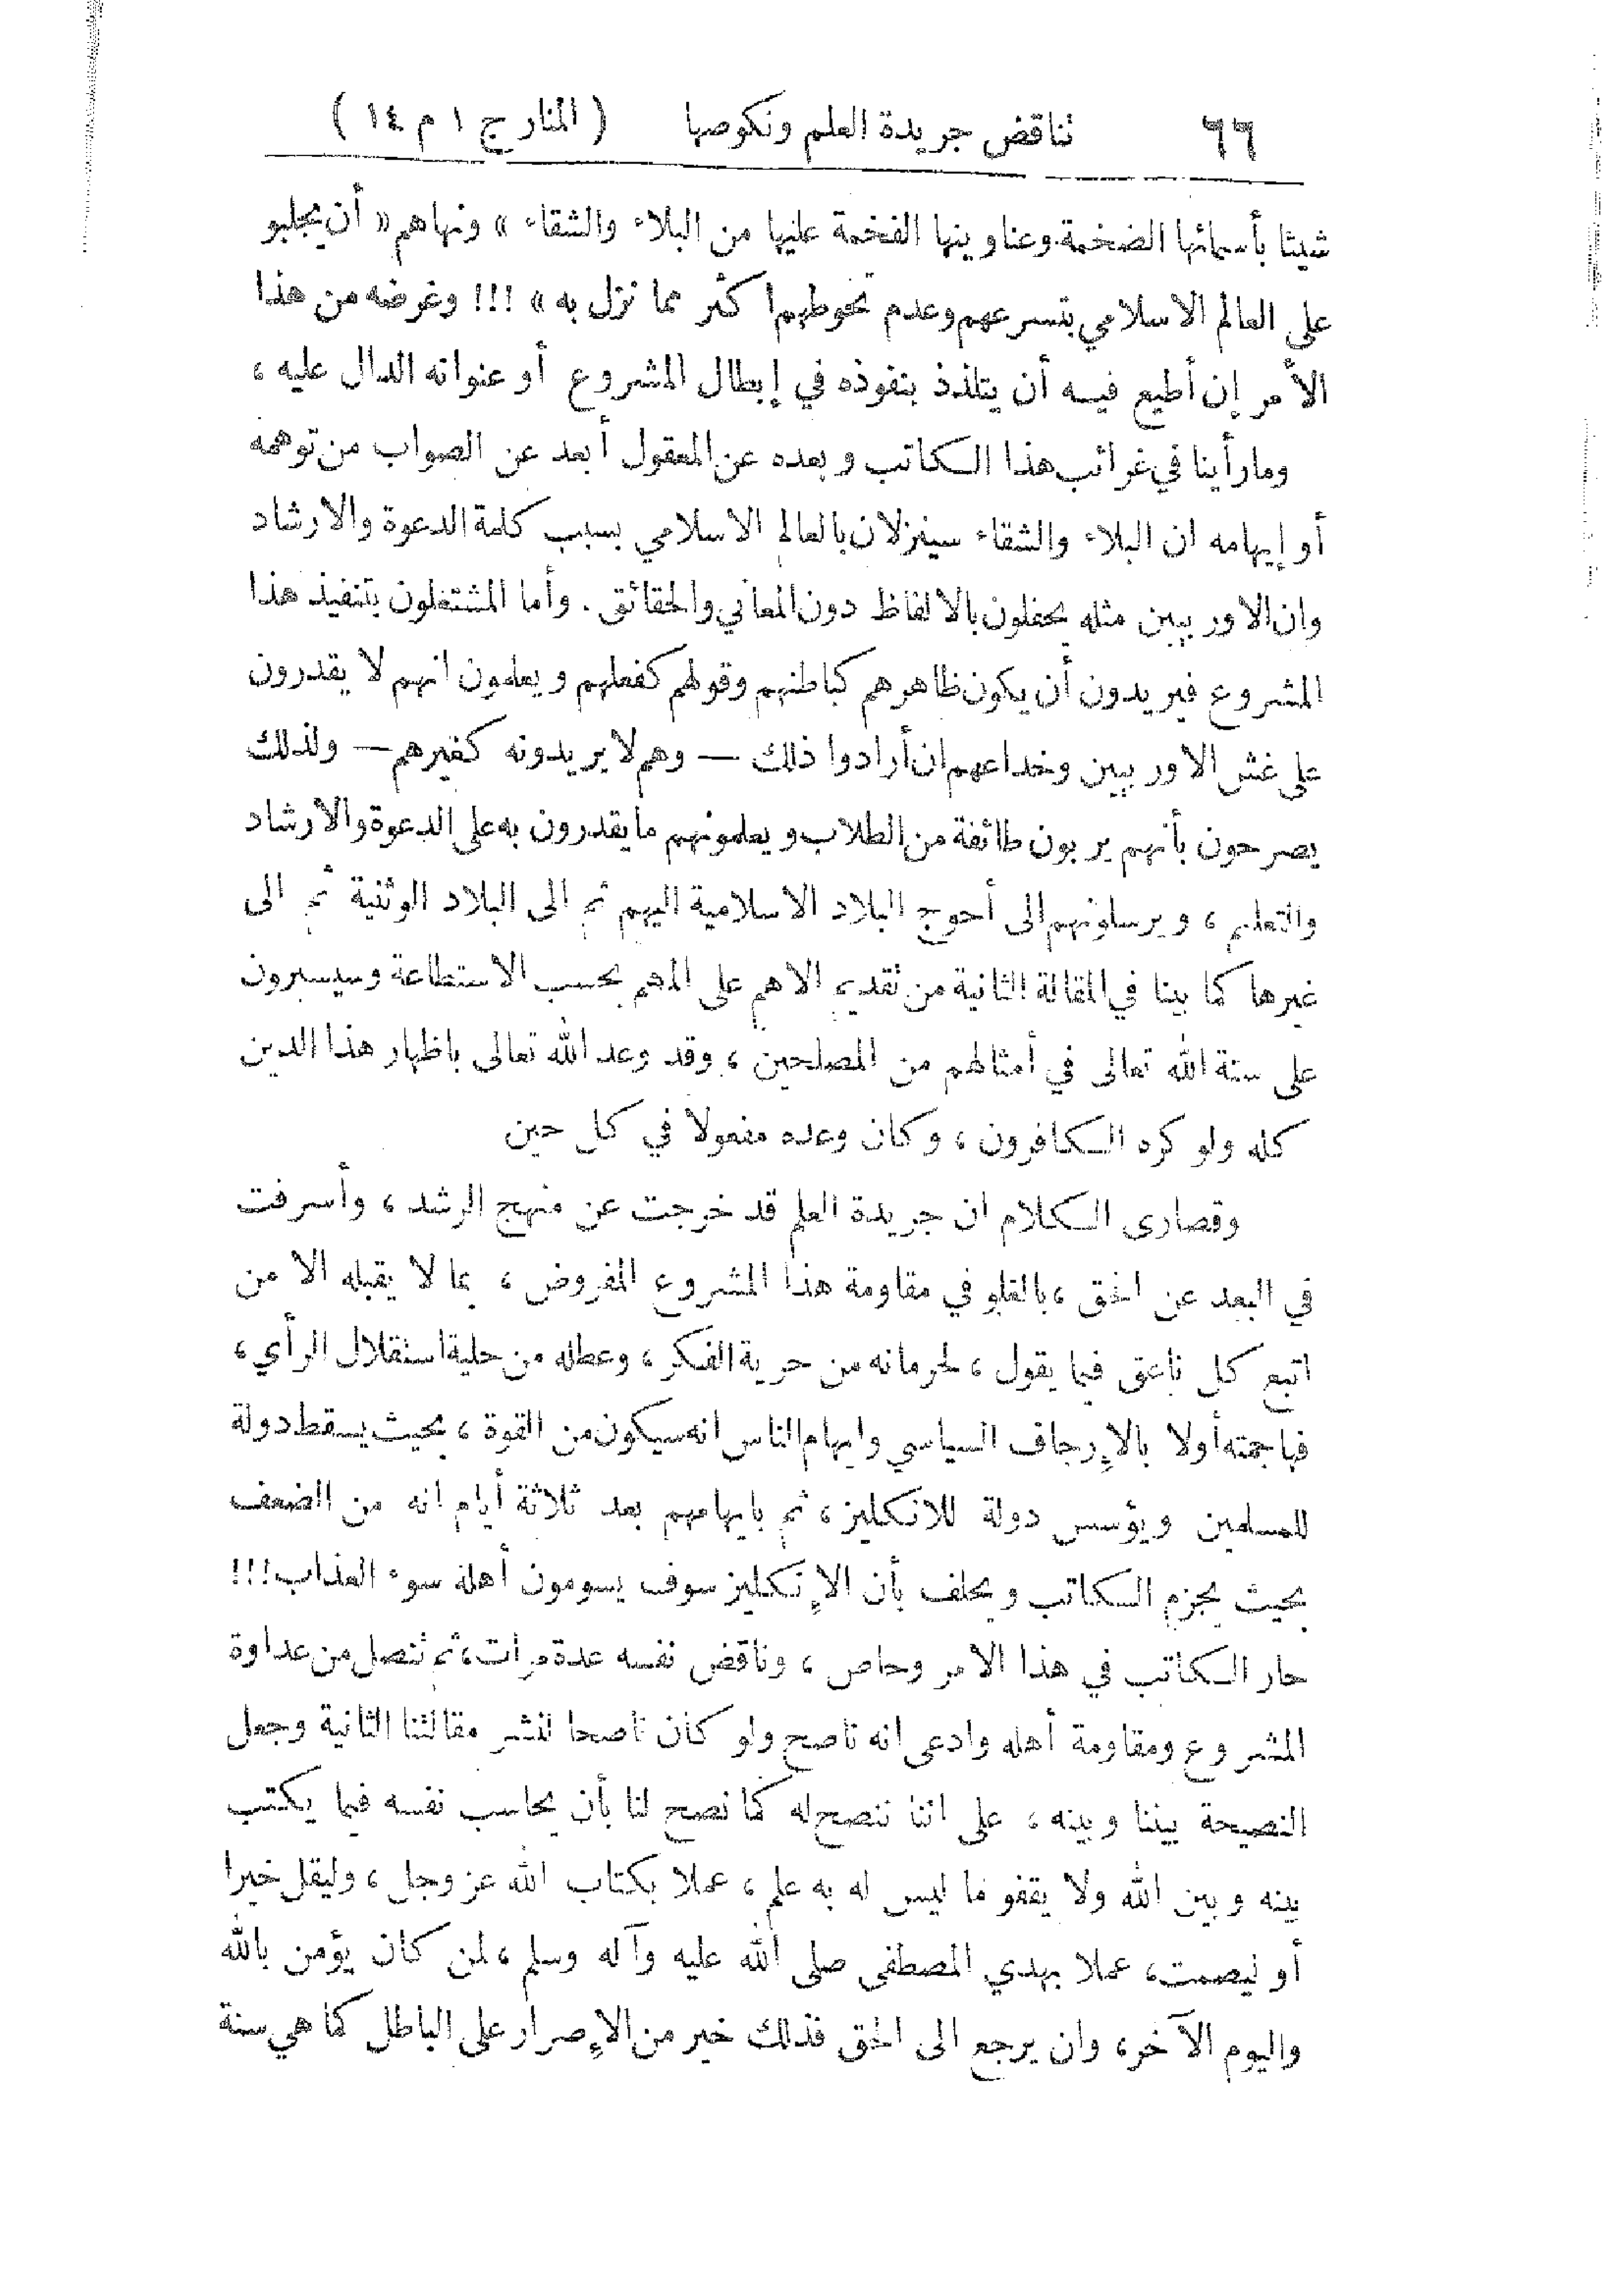 ٦٦ تناقض جريدة العلم ونكوصها ( المنار ج ١ م ١٤ )
شيئا بأسمائها الضخمة وعناوينها الفخمة عليها من البلاء والشقاء » ونهاهم « أن يجلبو
على العالم الاسلامي بتسرعهم وعدم تحوطهم أكثر مما نزل به » !!! وغرضه من هذا
الأمر إن أطيع فيه أن يتلذذ بنفوذه في إبطال المشروع أو عنوانه الدال عليه ،
ومارأينا في غرائب هذا الكاتب وبعده عن المعقول أبعد عن الصواب من توهمه
أو إيهامه ان البلاء والشقاء سينزلان بالعالم الاسلامي بسبب كلمة الدعوة والارشاد
وان الاوربيين مثله يحفلون بالالفاظ دون المعاني والحقائق . وأما المشتغلون بتنفيذ هذا
المشروع فيريدون أن يكون ظاهرهم كباطنهم وقولهم كفعلهم ويعلمون انهم لا يقدرون
على غش الاوربيين وخداعهم ان أرادوا ذلك — وهم لا يريدونه كغيرهم — ولذلك
يصرحون بأنهم يربون طائفة من الطلاب ويعلمونهم مايقدرون به على الدعوة والارشاد
والتعليم ، ويرسلونهم الى أحوج البلاد الاسلامية اليهم ثم الى البلاد الوثنية ثم الى
غيرها كما بينا في المقالة الثانية من تقديم الاهم على المهم بحسب الاستطاعة وسيسيرون
على سنة الله تعالى في أمثالهم من المصلحين ، وقد وعد الله تعالى باظهار هذا الدين
كله ولو كره الكافرون ، وكان وعده مفعولا في كل حين
وقصارى الكلام ان جريدة العلم قد خرجت عن منهج الرشد ، وأسرفت
في البعد عن الحق ، بالغلو في مقاومة هذا المشروع المفروض ، بما لا يقبله الا من
اتبع كل ناعق فيما يقول ، لحرمانه من حرية الفكر ، وعطله من حلية استقلال الرأي ،
فهاجمته أولا بالإرجاف السياسي وايهام الناس انه سيكون من القوة ، بحيث يسقط دولة
للمسلمين ويؤسس دولة للانكليز ، ثم بايهامهم بعد ثلاثة أيام انه من الضعف
بحيث يجزم الكاتب ويحلف بأن الإنكليز سوف يسومون أهله سوء العذاب !!!
حار الكاتب في هذا الامر وحاص ، وناقض نفسه عدة مرات ، ثم تنصل من عداوة
المشروع ومقاومة أهله وادعى انه ناصح ولو كان ناصحا لنشر مقالتنا الثانية وجعل
النصيحة بيننا وبينه ، على اننا ننصح له كما نصح لنا بأن يحاسب نفسه فيما يكتب
بينه وبين الله ولا يقفو ما ليس له به علم ، عملا بكتاب الله عز وجل ، وليقل خيرا
أو ليصمت ، عملا بهدي المصطفى صلى الله عليه وآله وسلم ، لمن كان يؤمن بالله
واليوم الآخر ، وان يرجع الى الحق فذلك خير من الإصرار على الباطل كما هي سنة